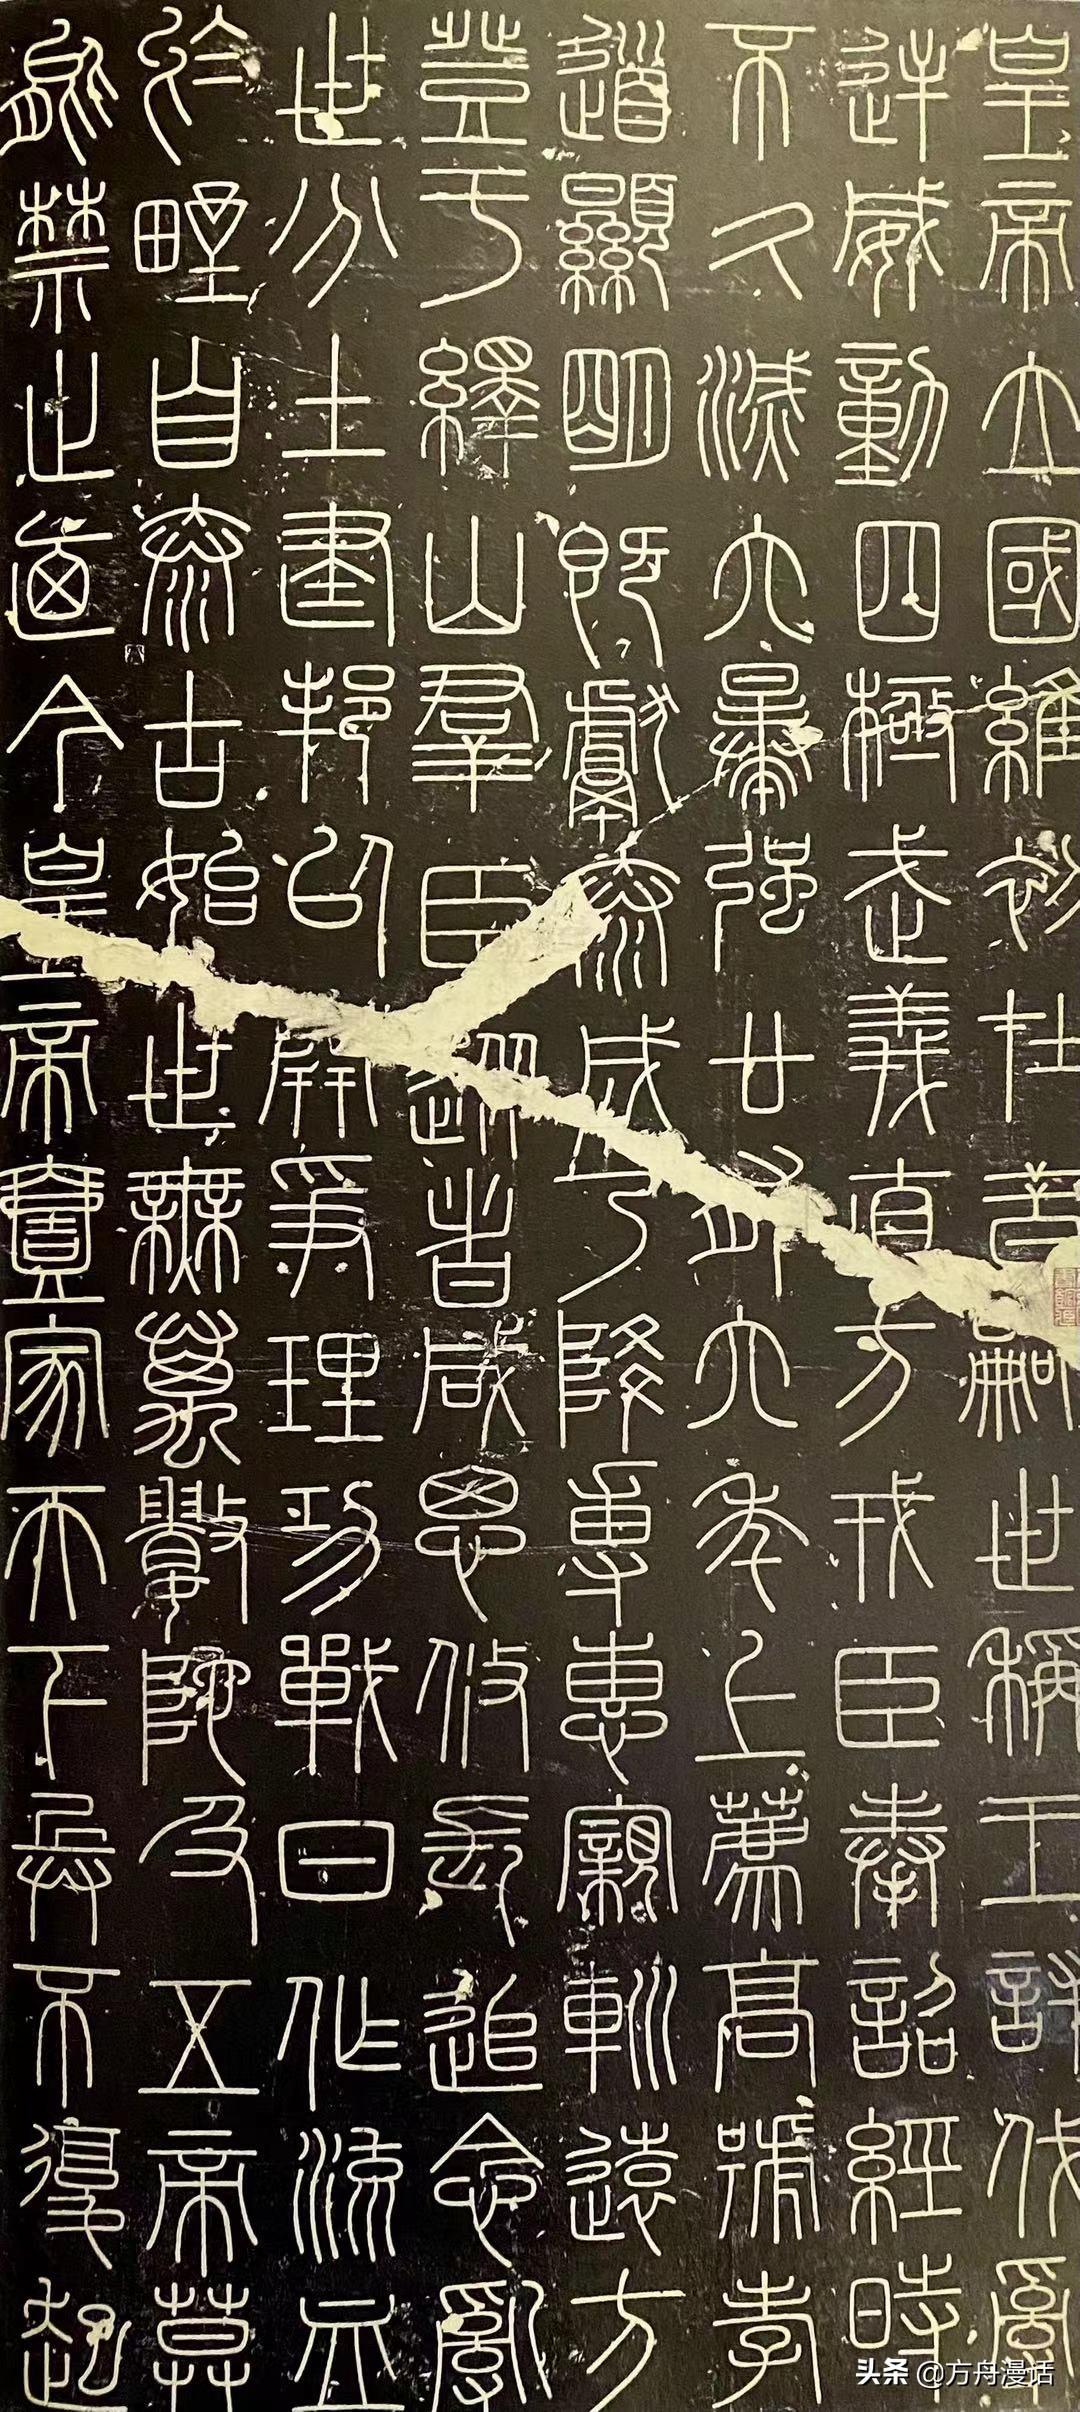 皇帝立國維初在昔嗣世稱王討伐亂
逆威動四極武義直方戎臣奉詔經時
不久滅六暴強廿有六年上薦高號孝
道顯明既獻泰成乃降專惠親巡遠方
登于繹山羣臣從者咸思攸長追念亂
世分土建邦以開爭理功戰日作流血
於野自泰古始世無萬數陀及五帝莫
能禁止廼今皇帝壹家天下兵不復起
头条 @方舟漫话